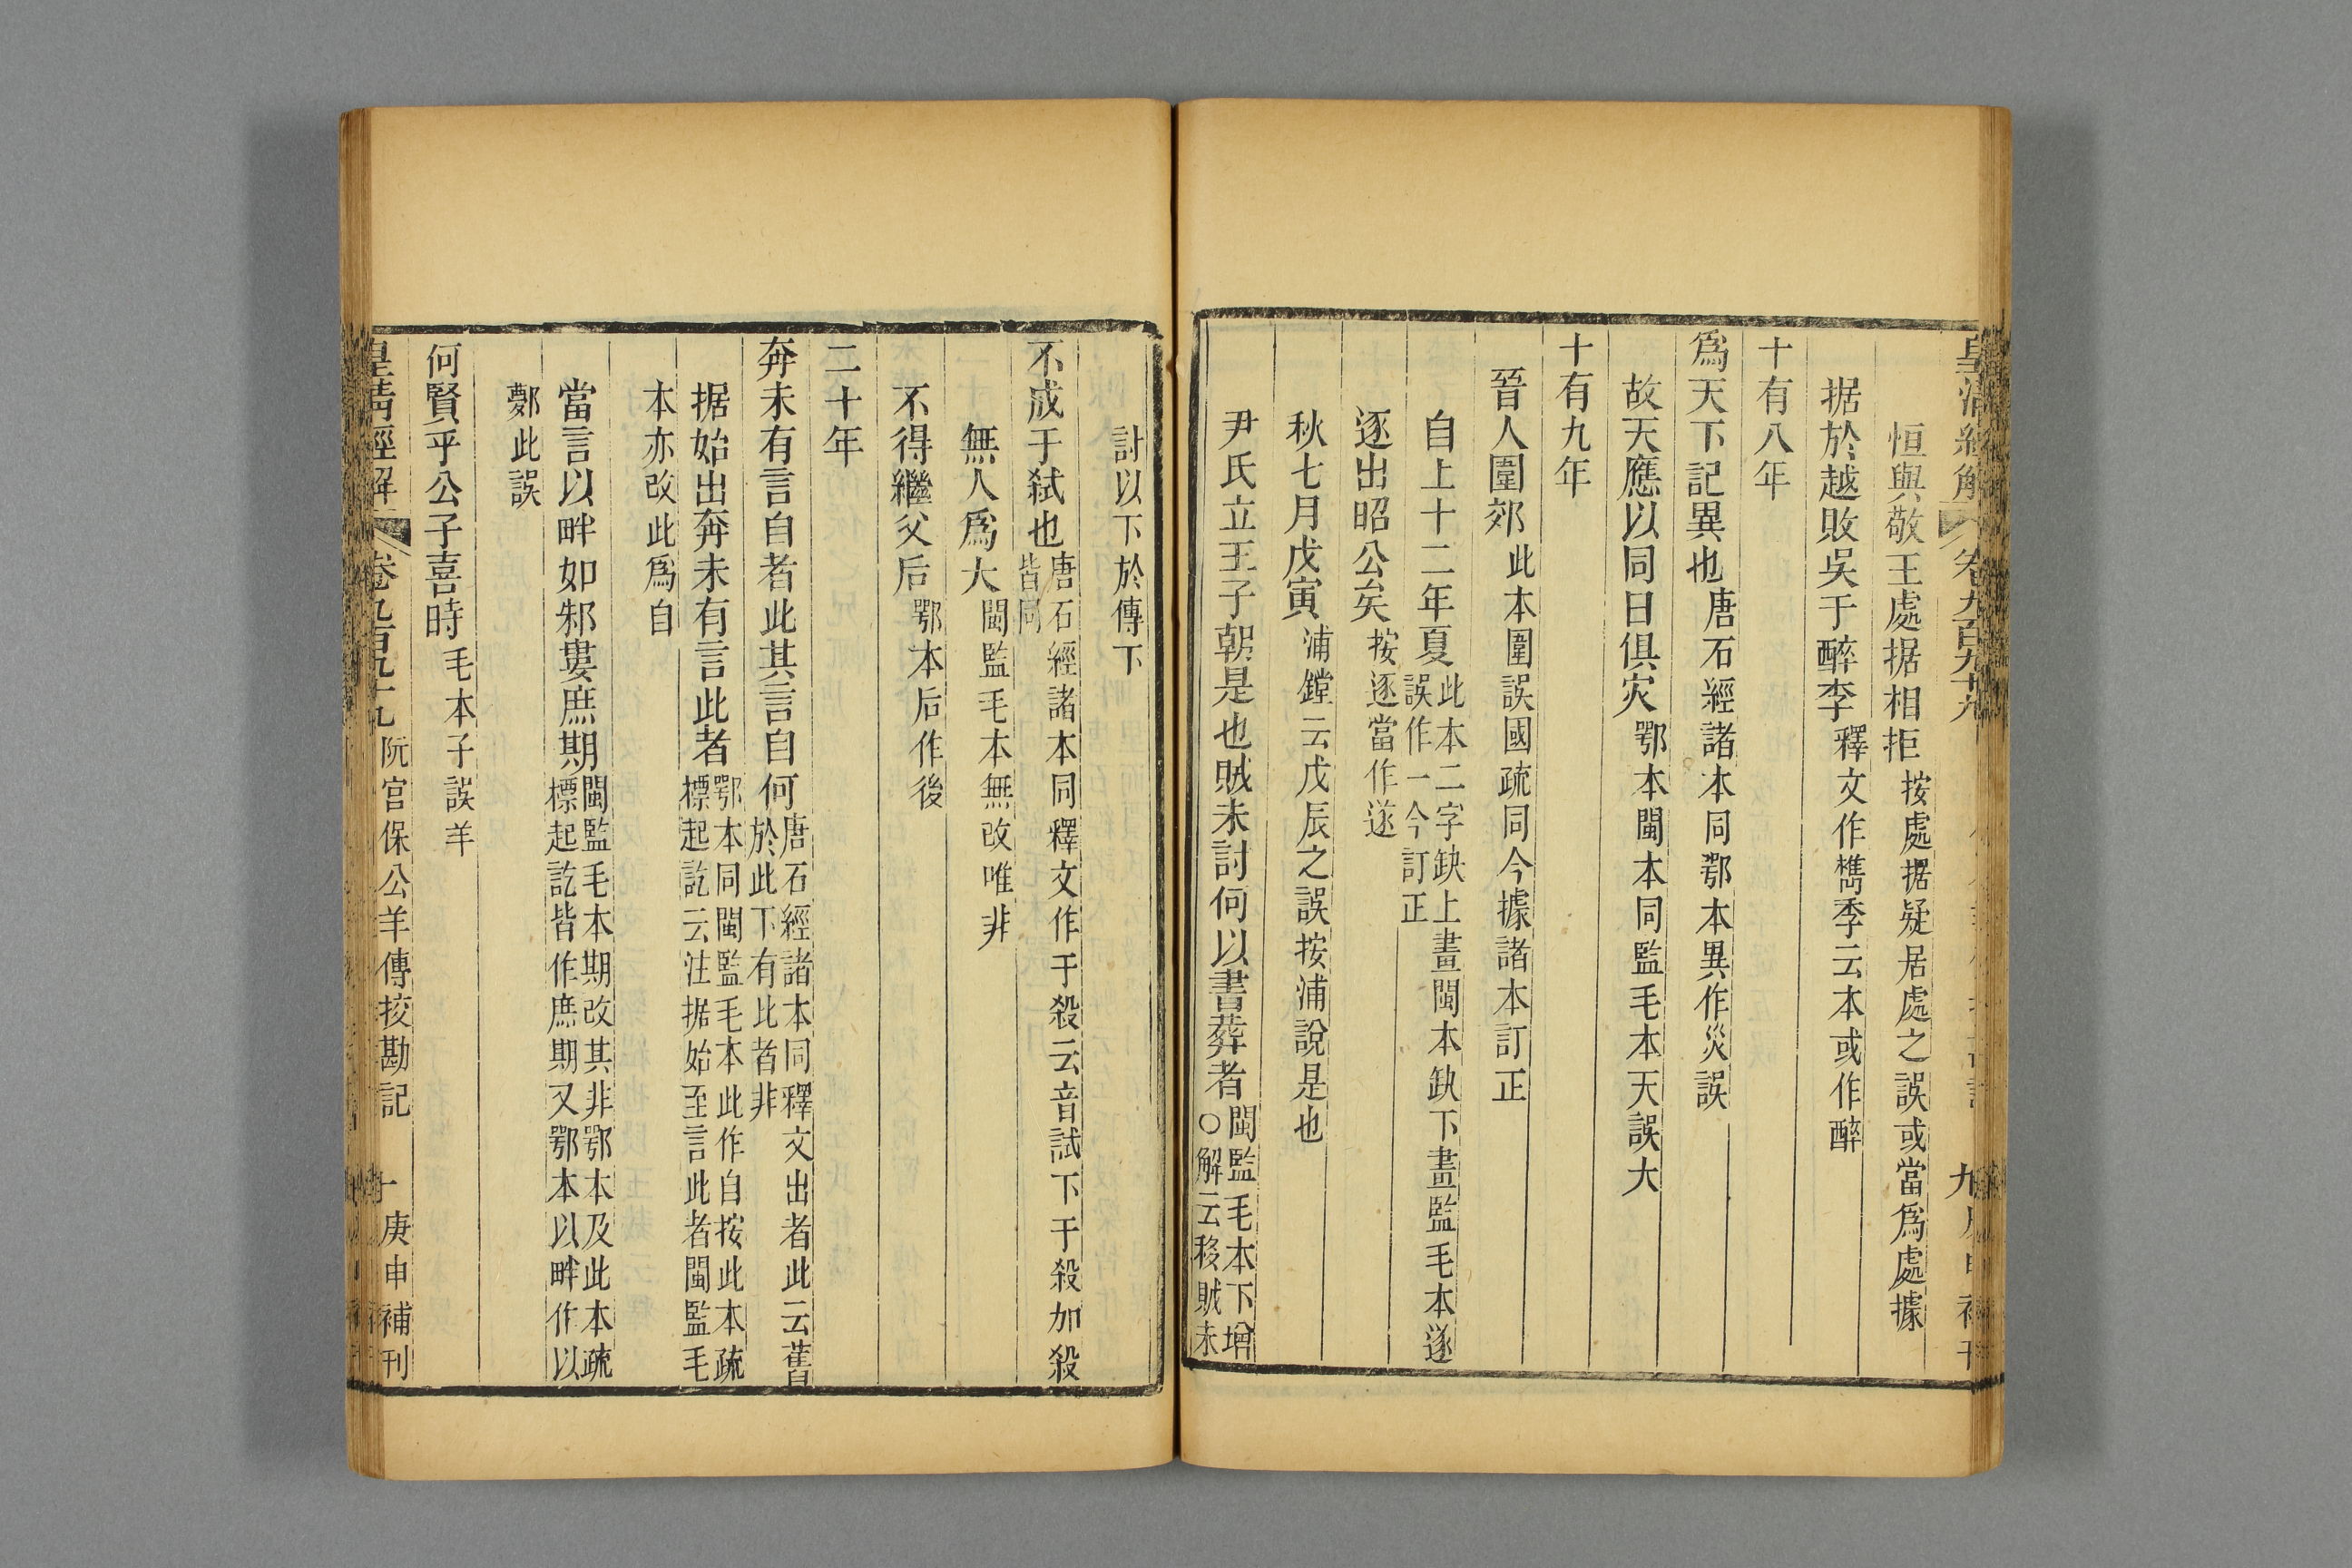 恒與敬王處据相拒按處据疑居處之誤或當爲處據
据於越敗吳于醉李釋文作檇季云本或作醉
十有八年
爲天下記異也唐石經諸本同鄂本異作災誤
故天應以同日俱灾鄂本閩本同監毛本天誤大
十有九年
晉人圍郊此本圍誤國疏同今據諸本訂正
自上十二年夏此本二字缺上畫閩本缺下畫監毛本遂誤作一今訂正
逐出昭公矣按逐當作遂
秋七月戊寅浦鏜云戊辰之誤按浦說是也
尹氏立王子朝是也賊未討何以書葬者閩監毛本下增〇解云移賊未
討以下於傳下
不成于弑也唐石經諸本同釋文作于殺云音試下于殺加殺皆同
無人爲大閩監毛本無改唯非
不得繼父后鄂本后作後
二十年
奔未有言自者此其言自何唐石經諸本同釋文出者此云舊於此下有此者非
据始出奔未有言此者鄂本同閩監毛本此作自按此本疏標起訖云注据始至言此者閩監毛
本亦改此爲自
當言以畔如邾婁庶期閩監毛本期改其非鄂本及此本疏標起訖皆作庶期又鄂本以畔作以
鄸此誤
何賢乎公子喜時毛本子誤羊
皇清經解 卷九百九十九 阮宮保公羊傳挍勘記 十 庚申補刊